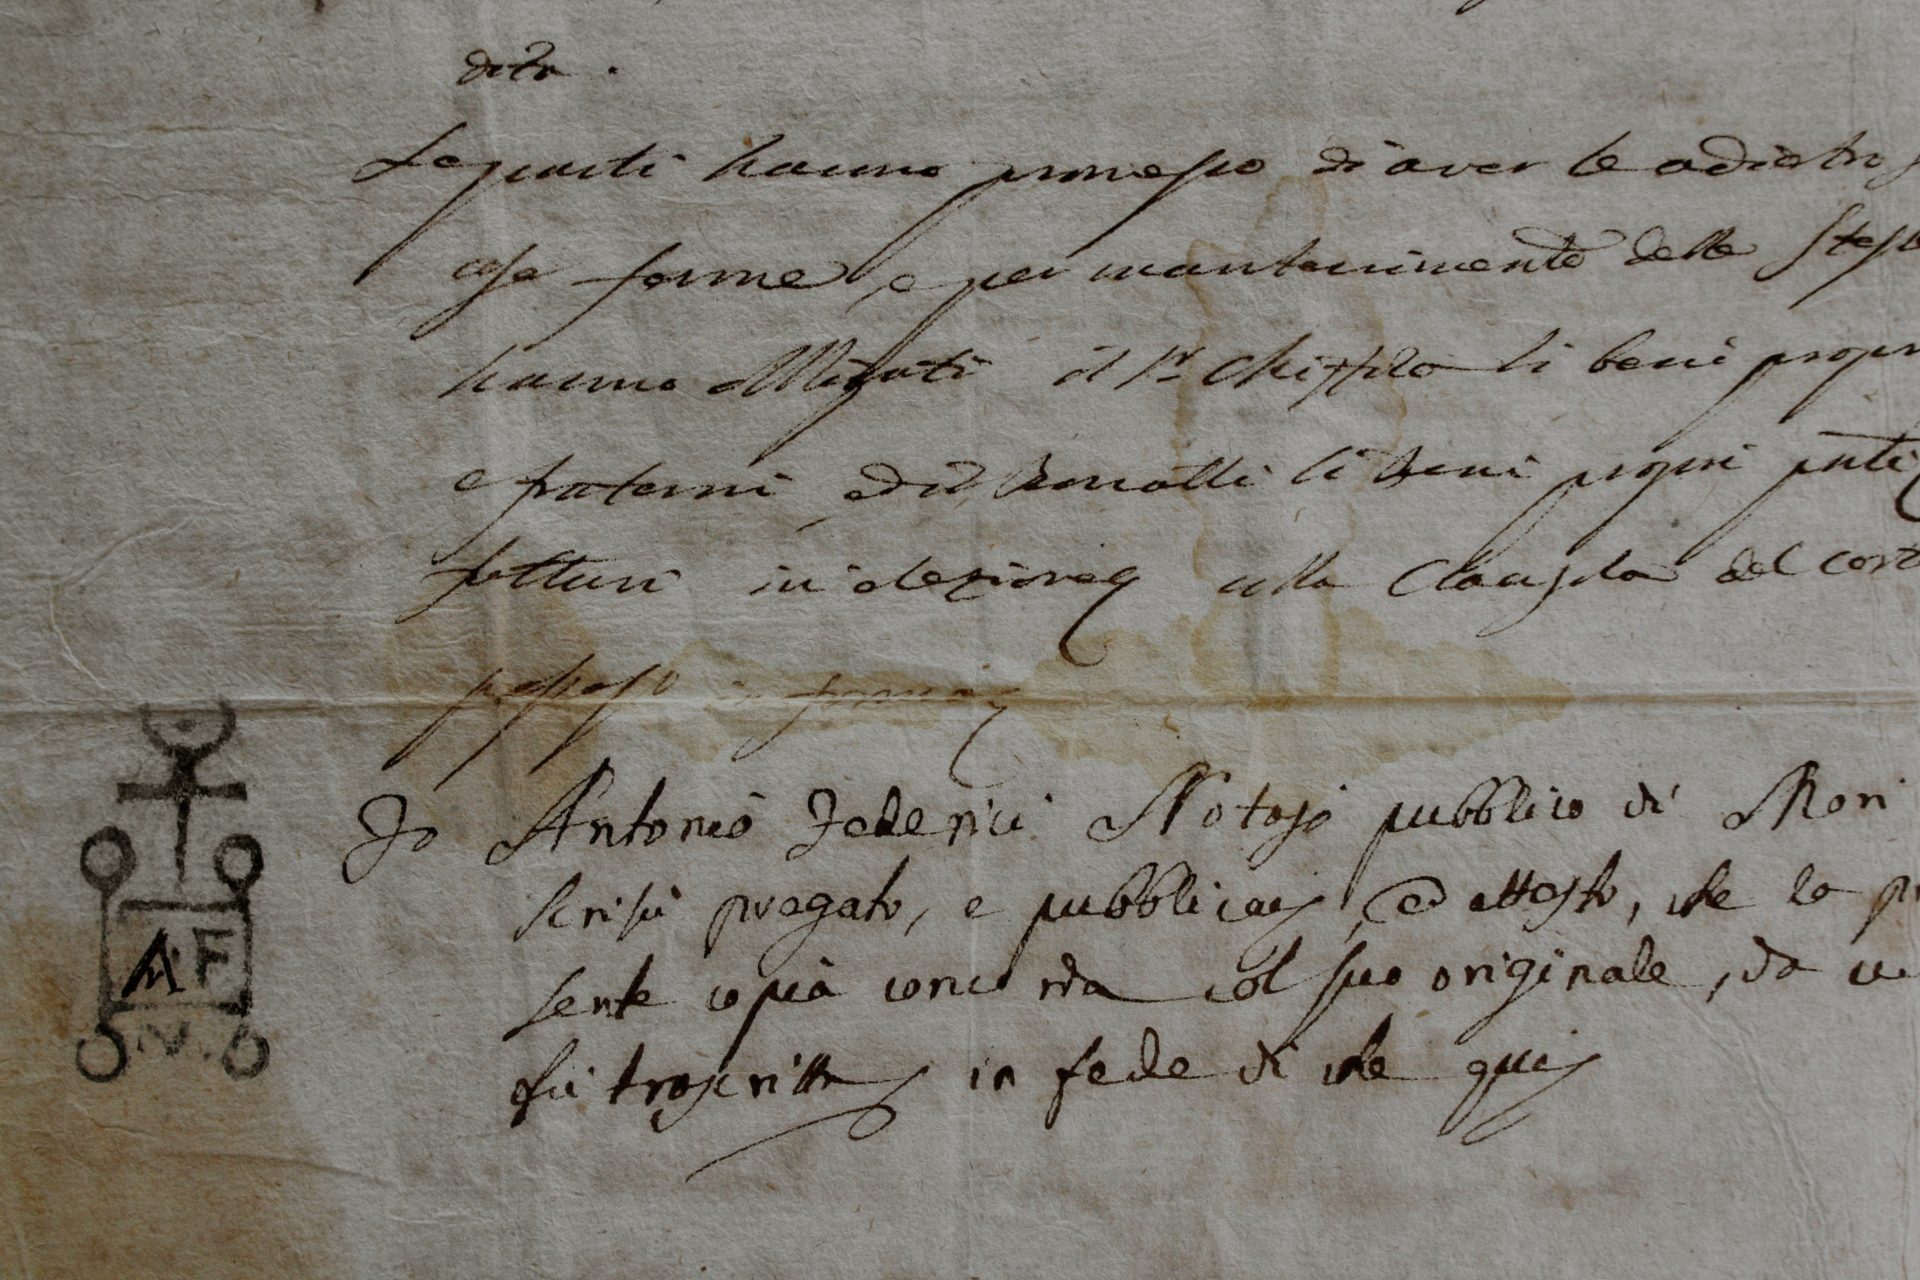 detta.
Le parti hanno promesso di aver le adietro
cose ferme, e per mantenimento delle Stesse
hanno obligati il Sr. Chiffilo li beni propri
e fraterni, ed il li beni propri pnti e
futturi in elezione alla Clausola del cost
possesso in forma
Io Antonio Federici Notajo pubblico di Mori
scrissi pregato, e pubblicai, ed attesto, che la pre
sente copia concorda col suo originale, da cui
fu trascritta in fede di che qui
A F
N.